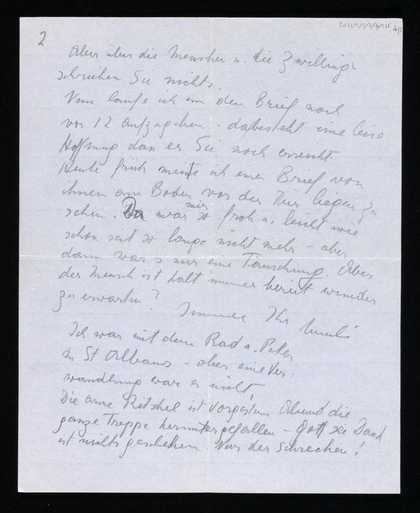 2
Aber über die Menschen u. die Zwillinge
schreiben Sie nichts.
Nun laufe ich um den Brief noch
vor 12 aufzugeben - dabei steht eine leise
Hoffnung dass er Sie noch erreicht
Heute früh meinte ich einen Brief von
ihnen am Boden vor der Tür liegen zu
sehen. Da war mir so froh u. leicht wie
schon seit so lange nicht mehr - aber
dann war's nur eine Täuschung. Aber
der Mensch ist halt immer bereit
zu erwarten? Immer Ihr
Ich war mit dem Rad u. Peter
in St Albans - aber eine Ver-
wandlung war es nicht
Die arme Ritschel ist vorgestern Abend die
ganze Treppe heruntergefallen - Gott sei Dank
ist nichts geschehen. Nur der Schrecken!